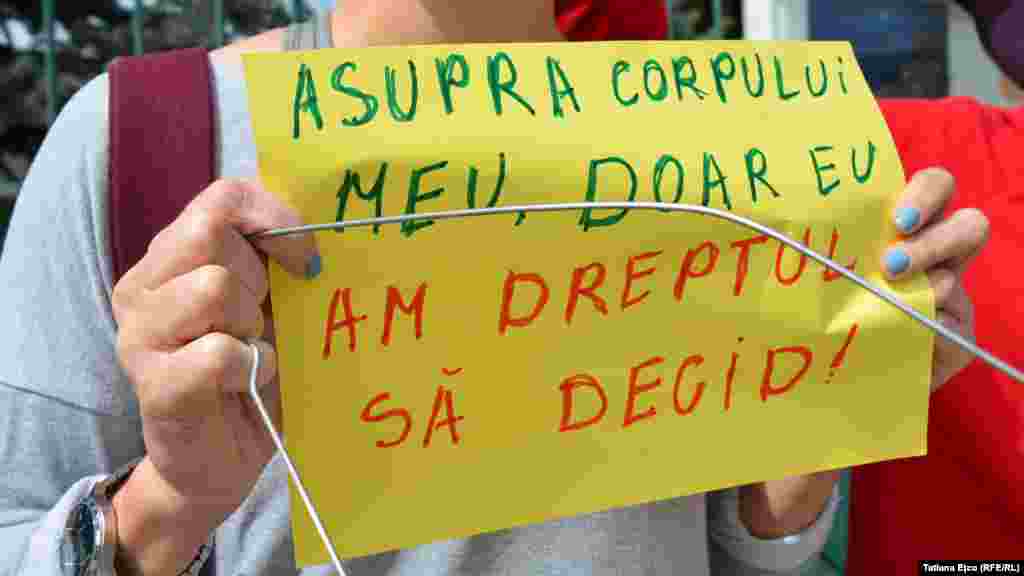 ASUPRA CORPULUi
MEU, DOAR EU
AM DREPTUL
SĂ DECiD!
Tatiana Ejco (RFE/RL)